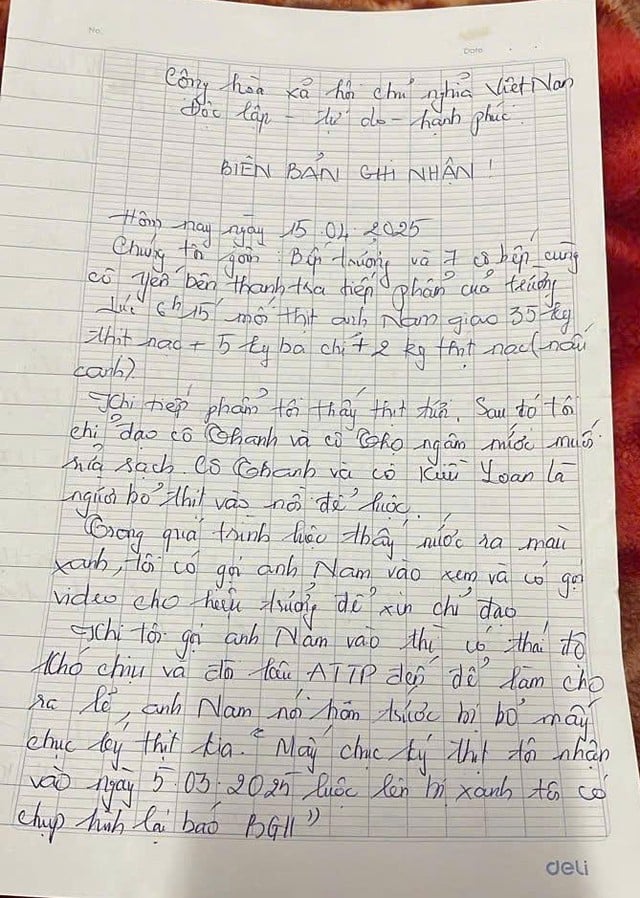 No.
Date
Công hòa xả hội chủ nghĩa Việt Nam
Độc lập - tự do - hạnh phúc.
BIÊN BẢN GHI NHẬN !
Hôm nay ngày 15.04.2025
Chúng tôi gồm: Bếp trưởng và 7 cô bếp cùng
cô Yến bên thanh tra tiếp phẩm của trường
Lúc 6h15' mối thịt anh Nam giao 35 kg
thịt nạc + 5 ky ba chỉ + 2 kg thịt nạc (nấu
canh).
Khi tiếp phẩm tôi thấy thịt tươi. Sau đó tôi
chỉ đạo cô Thanh và cô Thọ ngâm nước muối
rửa sạch. Cô Thanh và cô Kiều Loan là
người bỏ thịt vào nồi để luộc.
Trong quá trình luộc thấy nước ra màu
xanh, tôi có gọi anh Nam vào xem và có gọi
video cho hiệu trưởng để xin chỉ đạo
Khi tôi gọi anh Nam vào thì có thái độ
khó chịu và đòi kêu ATTP đến để làm cho
ra lẽ, anh Nam nói hôm trước bị bỏ mấy
chục ký thịt kia. "Mấy chục ký thịt tôi nhận
vào ngày 5.03.2025 luộc lên bị xanh tôi có
chụp hình lại báo BGH"
deli